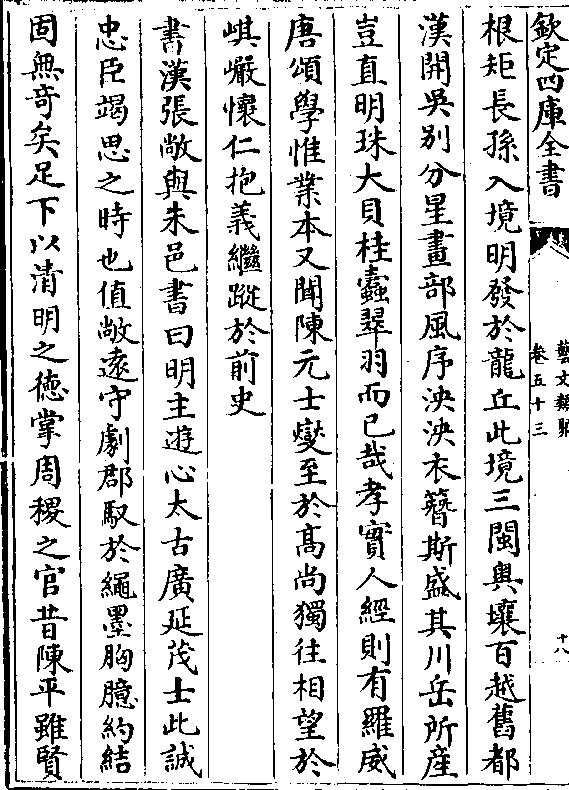 欽定四庫全書
藝文類聚
卷五十三
十八
根矩長孫入境明發於龍丘此境三閩輿壤百越舊都
漢開吳别分星畫部風序泱泱衣簪斯盛其川岳所産
豈直明珠大貝桂蠧翠羽而已哉孝實人經則有羅威
唐頌學惟業本又聞陳元士燮至於髙尚獨往相望於
岷巖懷仁抱義繼蹤於前史
書漢張敞與朱邑書曰明主遊心太古廣延茂士此誠
忠臣竭思之時也值敞遠守劇郡馭於繩墨胸臆約結
固無奇矣足下以清明之徳掌周稷之官昔陳平雖賢